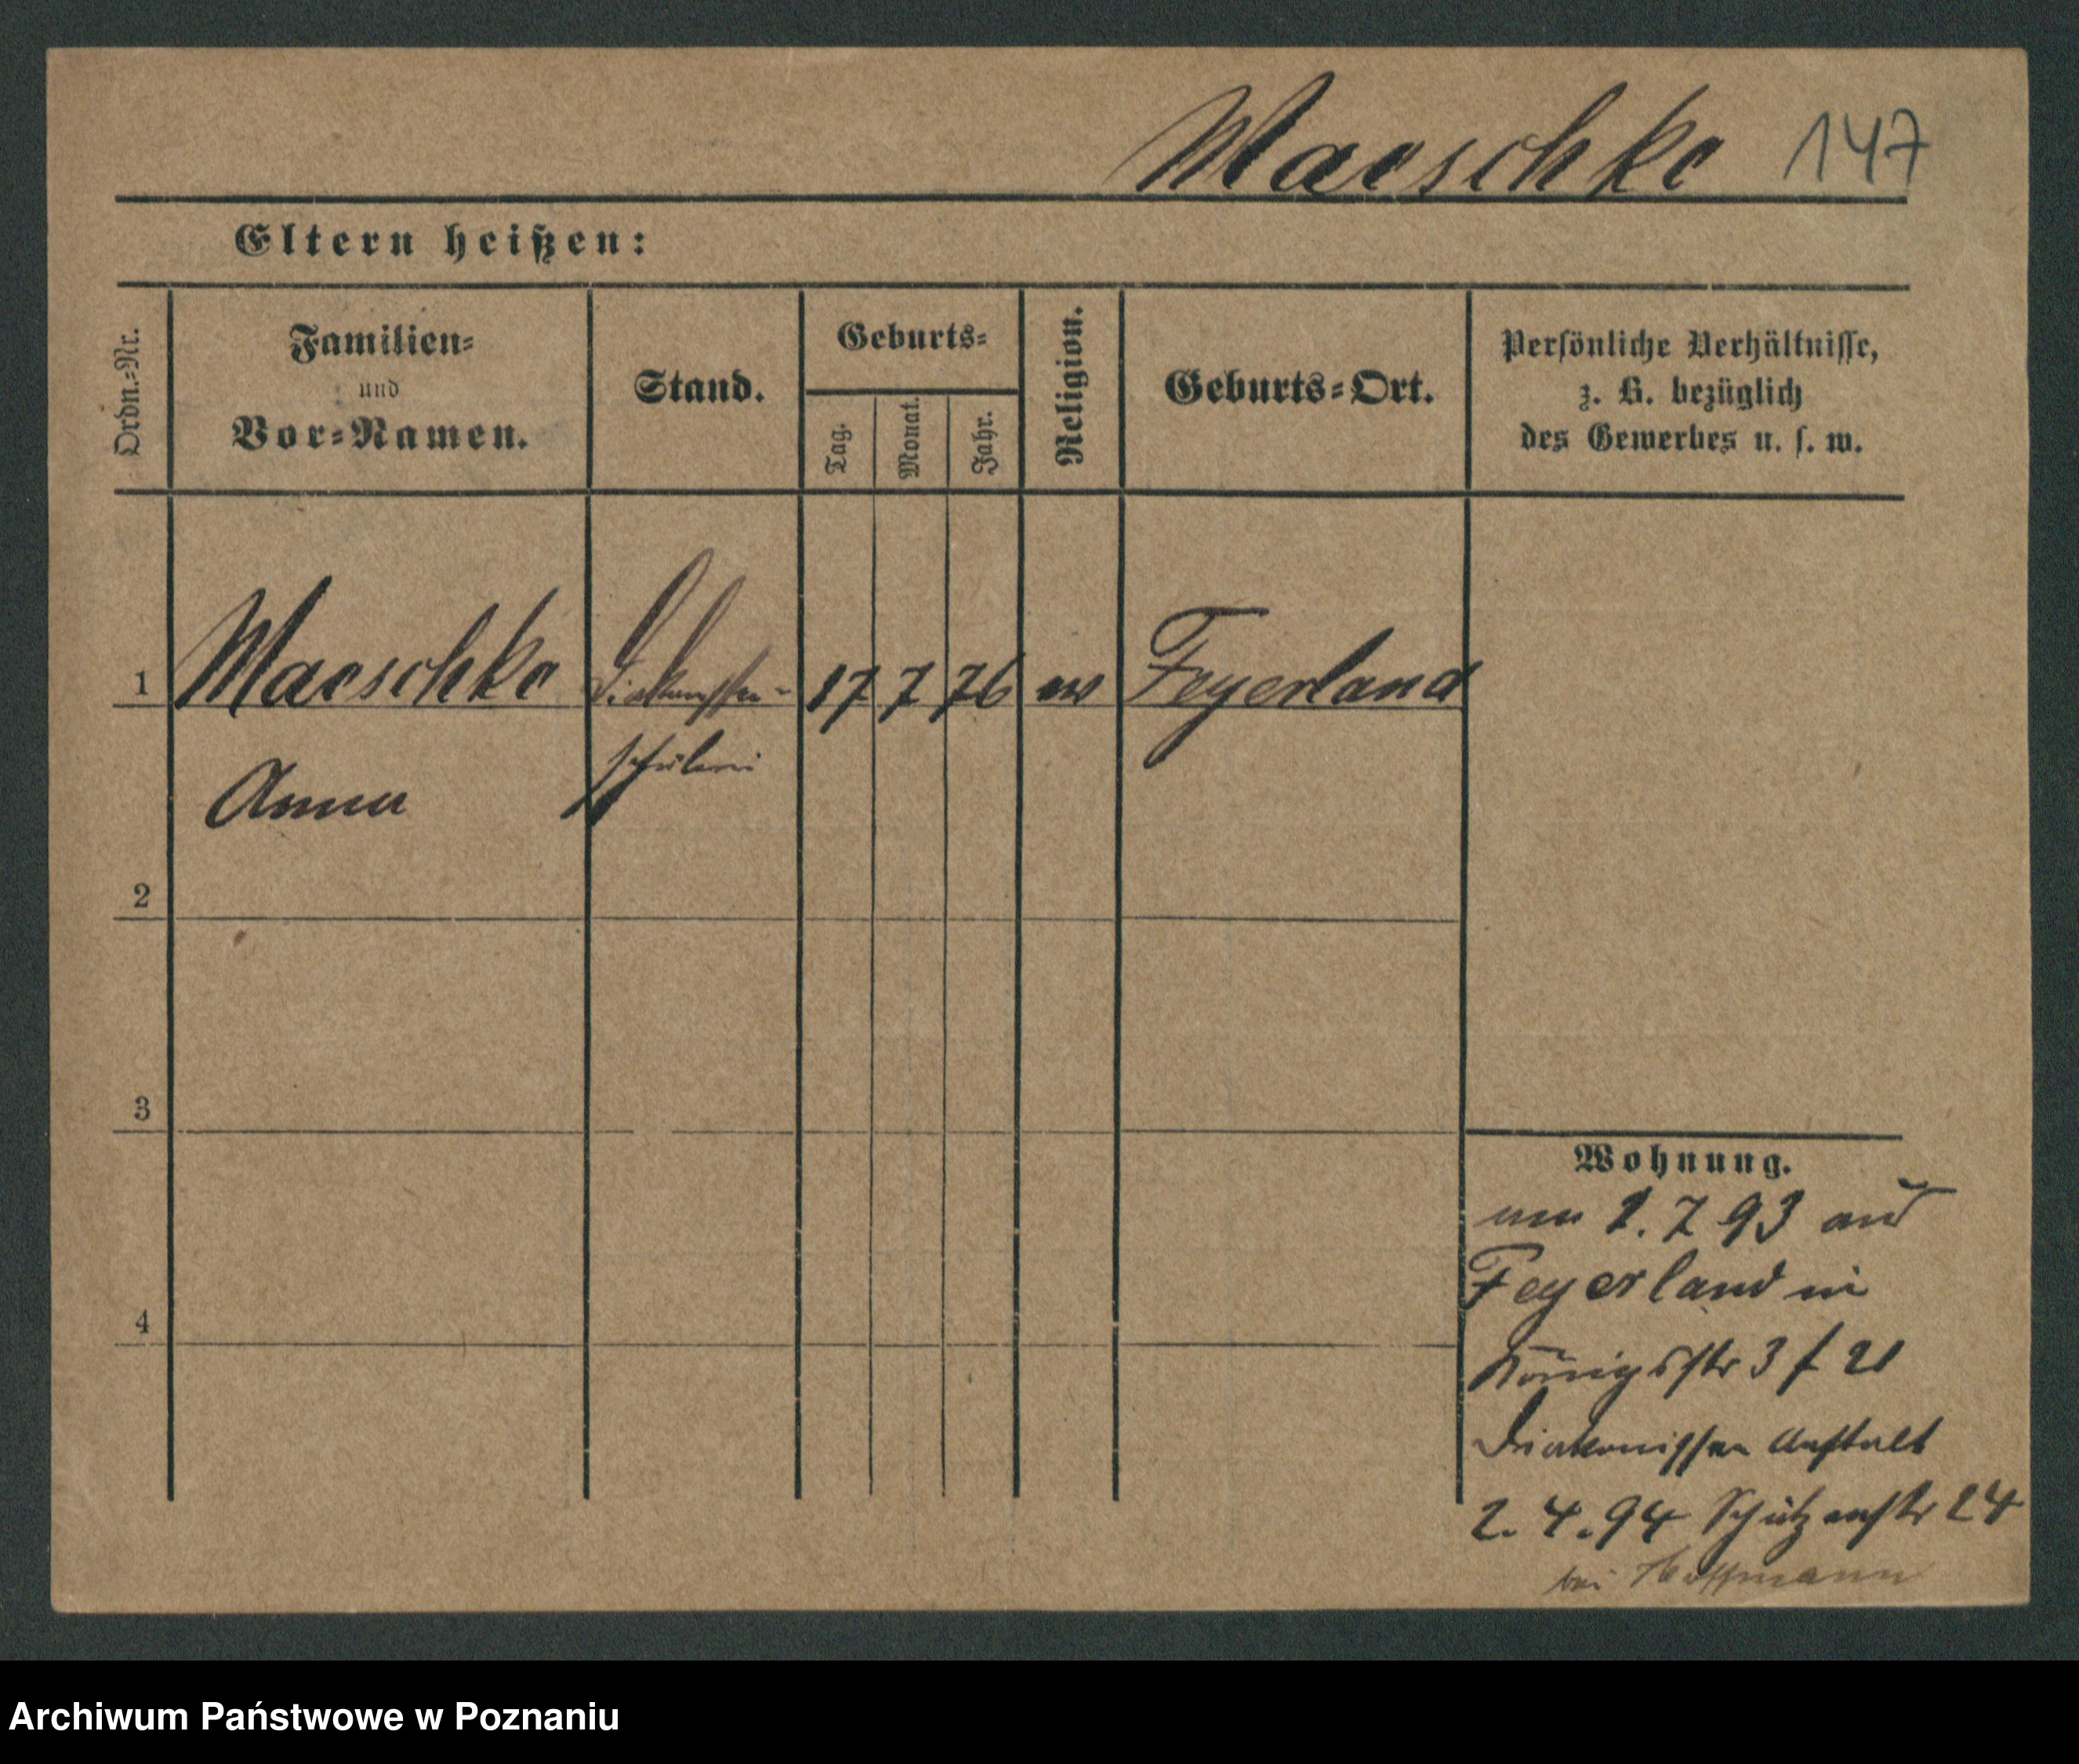 Maeschke 147
Eltern heißen:
Ordn.-Nr.
Familien-
und
Vor-Namen.
Stand.
Geburts-
Tag.
Monat.
Jahr.
Religion.
Geburts-Ort.
Persönliche Verhältnisse,
z. B. bezüglich
des Gewerbes u. s. w.
1 Maeschke Diakonissen- 17 7 76 ev Feyerland
Anna schülerin
2
3
4
Wohnung.
1. 7 93 aus
Feyerland in
Königsstr 3 f 21
Diakonissen Anstalt
2. 4. 94 Schützenstr 24
bei Hoffmann
Archiwum Państwowe w Poznaniu